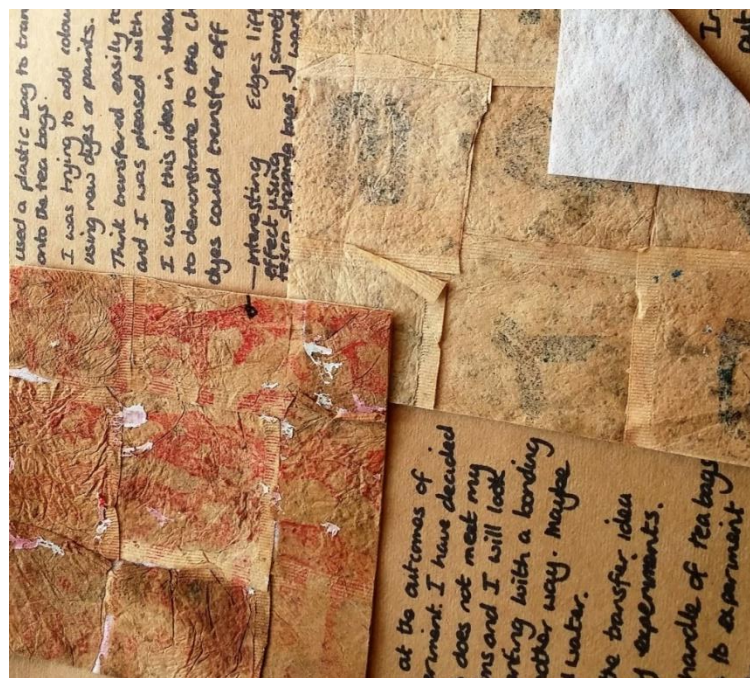 used a plastic bag to tran
onto the tea bags.
I was trying to add colou
using new dyes or paints.
Think transfered easily to
and I was pleased with
I used this idea in
to demonstrate to the ch
dyes could transfer off
Interesting Edges lift
effect using somet
tesco bags. I want
In
out
at the outcomes of
riment. I have decided
does not meet my
ms and I will look
nting with a bonding
nother way. Maybe
l water.
he transfer idea
y experiments.
handle of tea bags
to experiment